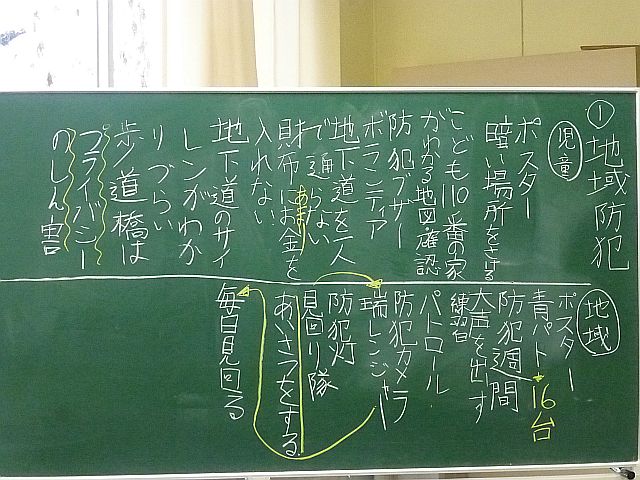 ① 地域防犯
児童
ポスター
暗い場所をさける
こども110番の家
がわかる地図・確認
防犯ブザー
ボランティア
地下道を一人
で通らない
財布にあまりお金を
入れない
地下道のサイ
レンがわか
りづらい
歩道橋は
プライバシー
のしん害
地域
ポスター
青パト→16台
防犯週間
大声を出す
練習
パトロール
防犯カメラ
瑞レンジャー
防犯灯
見回り隊
あいさつをする
毎日見回る